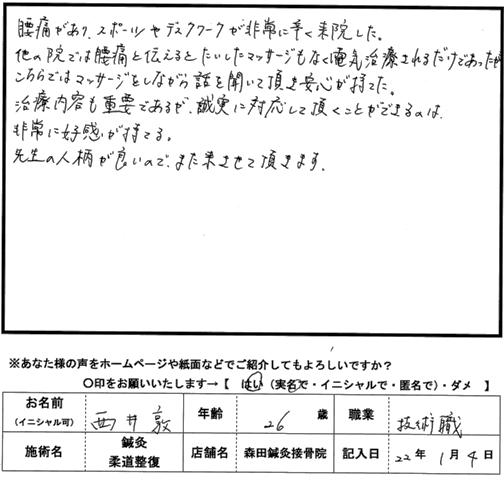 腰痛があり、スポーツやデスクワークが非常に辛く来院した。
他の院では腰痛と伝えるとたいしたマッサージもなく電気治療されるだけであったが
こちらではマッサージをしながら話を聞いて頂き安心が持てた。
治療内容も重要であるが、誠実に対応して頂くことができるのは、
非常に好感が持てる。
先生の人柄が良いので、また来させて頂きます。
※あなた様の声をホームページや紙面などでご紹介してもよろしいですか？
〇印をお願いいたします→【 はい（実名で・イニシャルで・匿名で）・ダメ 】
お名前 (イニシャル可) 西井 敦 年齢 26 歳 職業 技術職
施術名 鍼灸 柔道整復 店舗名 森田鍼灸接骨院 記入日 22年 1月 4日